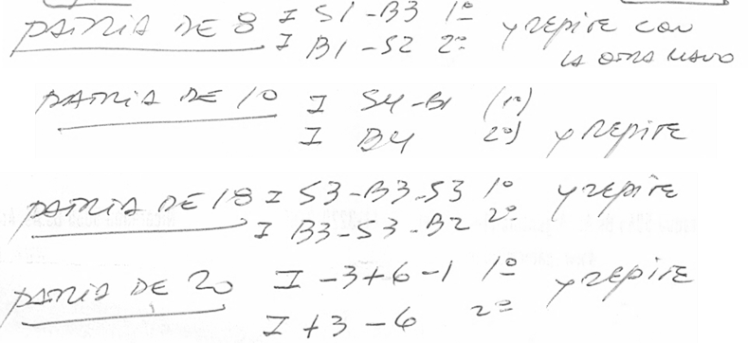 PATRIA DE 8 I S1-B3 1º y repite con
I B1-S2 2º la otra mano
PATRIA DE 10 I S4-B1 (1º)
I B4 2º) y repite
PATRIA DE 18 I S3-B3-S3 1º y repite
I B3-S3-B2 2º
PATRIA DE 20 I -3+6-1 1º y repite
I +3-6 2º